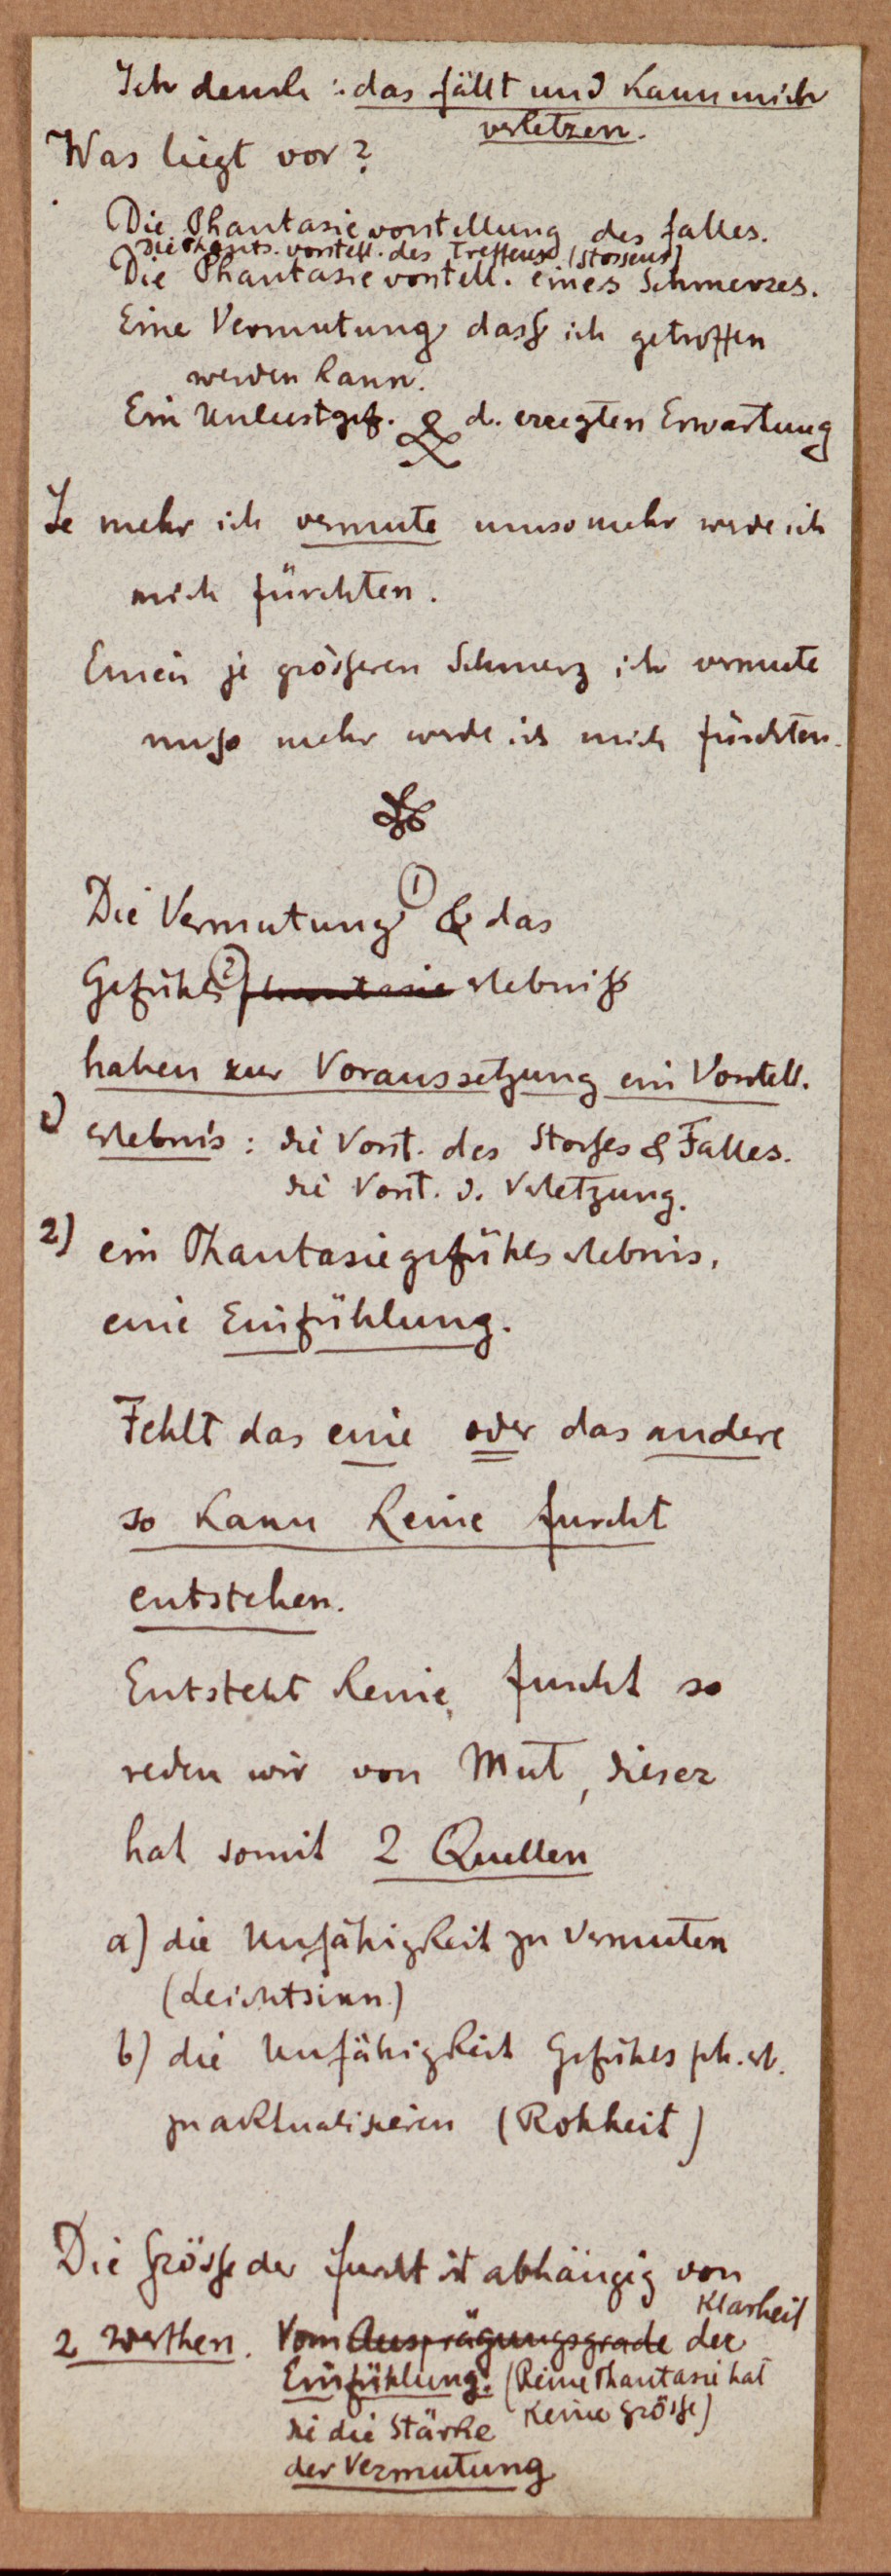 Ich denke : das fällt und kann mich
verletzen.
Was liegt vor?
Die Phantasievorstellung des Falles.
Die Phants. vorstell. des Treffens (Stossens)
Die Phantasievorstell. eines Schmerzes.
Eine Vermutung dass ich getroffen
werden kann.
Ein Unlustgef. d. erregten Erwartung
Je mehr ich vermute umsomehr werde ich
mich fürchten.
Einen je grösseren Schmerz ich vermute
umso mehr werde ich mich fürchten.
Die Vermutung ① & das
Gefühls ② phantasie erlebniss
haben zur Voraussetzung ein Vorstell.
1) erlebnis : die Vorst. des Stosses & Falles.
die Vorst. d. Verletzung.
2) ein Phantasiegefühlserlebnis,
eine Einfühlung.
Fehlt das eine oder das andere
so kann keine Furcht
entstehen.
Entsteht keine Furcht so
reden wir von Mut, dieser
hat somit 2 Quellen
a) die Unfähigkeit zu vermuten
(Leichtsinn)
b) die Unfähigkeit Gefühls ph. erl.
zu aktualisieren (Rohheit)
Die Grösse der Furcht ist abhängig von
2 Werthen. Vom Ausprägungsgrade der Klarheit
Einfühlung. (Reine Phantasie hat
keine Grösse)
die Stärke
der Vermutung